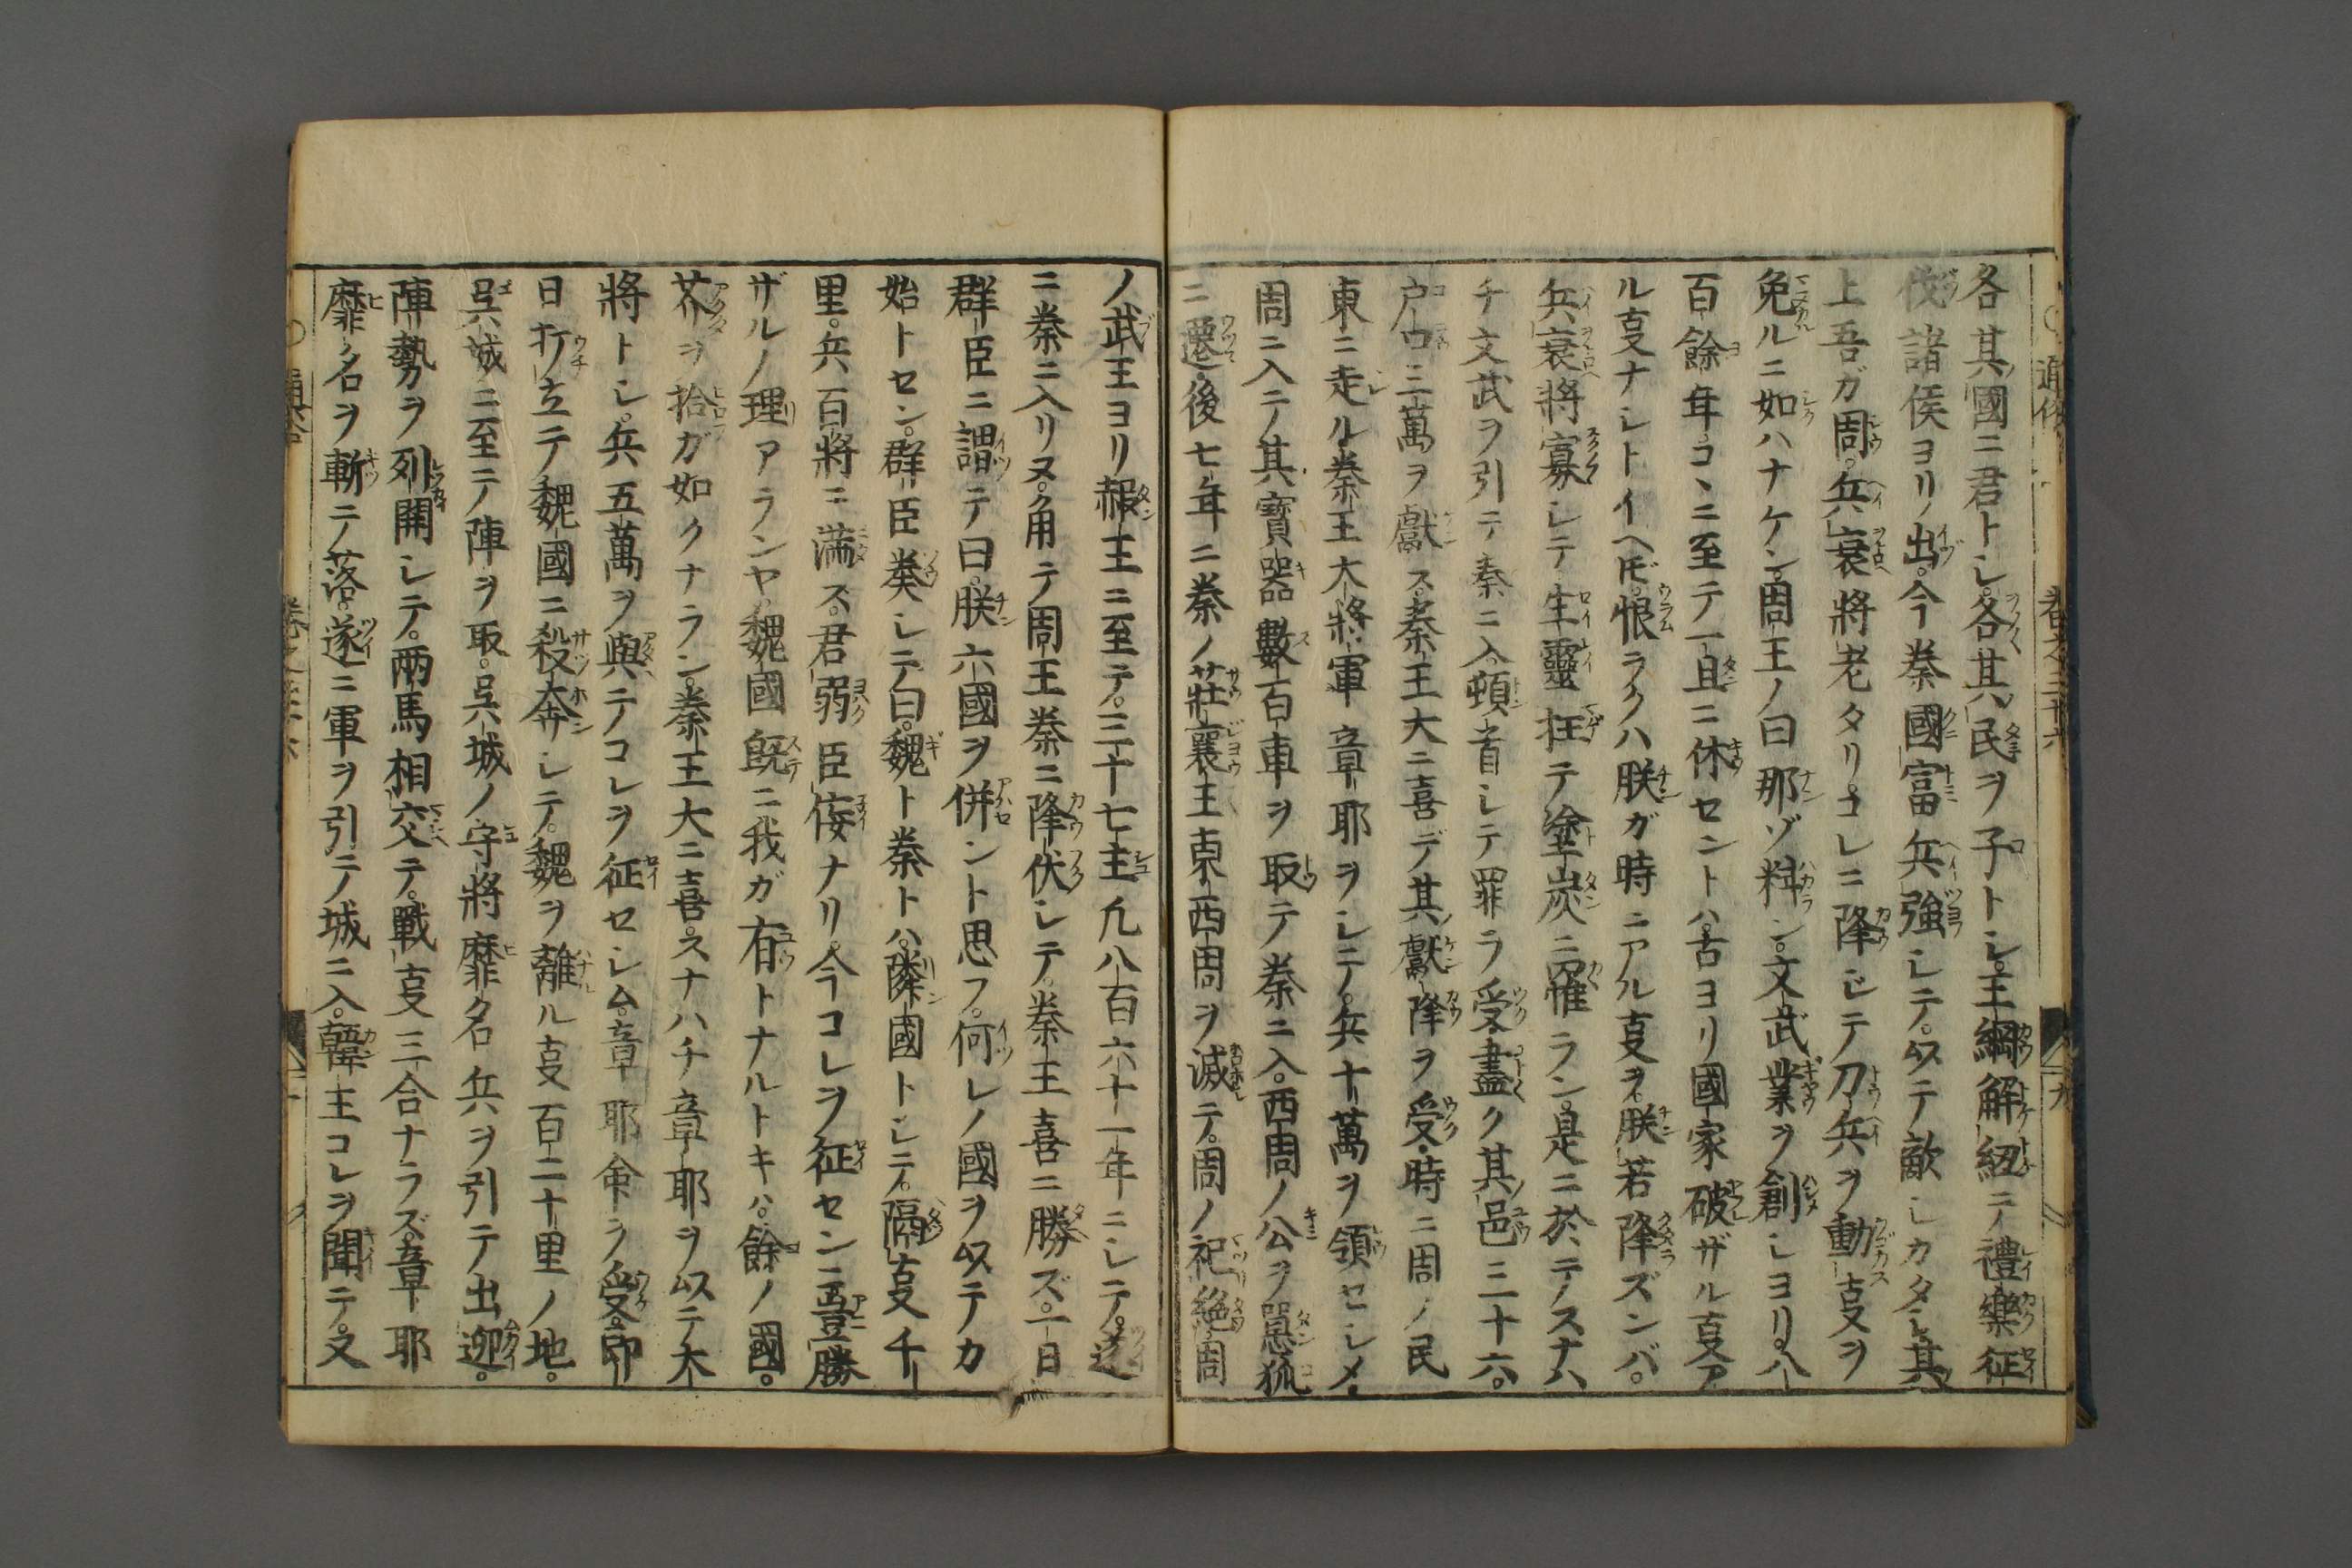 各其國ニ君トシ。各其民ヲ子トシ。王綱解紐ニテ禮樂征
伐諸侯ヨリ出。今秦國富兵強シテ。以テ敵シカタシ其
上吾ガ周。兵衰將老タリ。コレニ降ジテ刀兵ヲ動夏ヲ
免ルニ如ハナケン。周王ノ曰那ゾ料ン。文武業ヲ創シヨリ。八
百餘年コヽニ至テ一旦ニ休セントハ。古ヨリ國家破ザル夏ア
ル夏ナシトイヘ𪜈。恨ラクハ朕ガ時ニアル夏ヲ。朕若降ズンバ。
兵衰將寡シテ生靈枉テ塗炭ニ罹ラン。是ニ於テスナハ
チ文武ヲ引テ秦ニ入。頓首シテ罪ヲ受。盡ク其邑三十六。
戸口三萬ヲ獻ス。秦王大ニ喜デ其獻降ヲ受。時ニ周ノ民
東ニ走ル秦王大將軍章耶ヲシテ。兵十萬ヲ領セシメ。
周ニ入テ其寶噐數百車ヲ取テ秦ニ入。西周ノ公ヲ𢠸狐
ニ遷。後七年ニ秦ノ莊襄王東西周ヲ滅テ。周ノ祀絶。周
ノ武王ヨリ赧王ニ至テ。三十七主凢八百六十一年ニシテ。遂
ニ秦ニ入リヌ。角テ周王秦ニ降伏シテ。秦王喜ニ勝ズ。一日
群臣ニ謂テ曰。朕六國ヲ併ント思フ。何レノ國ヲ以テカ
始トセン。群臣奏シテ曰。魏ト秦トハ。隣國トシテ。隔夏千
里。兵百將ニ満ス。君弱臣侫ナリ。今コレヲ征セン豈勝
ザルノ理アランヤ。魏國既ニ我ガ有トナルトキハ。餘ノ國。
芥ヲ拾ガ如クナラン。秦王大ニ喜。スナハチ章耶ヲ以テ大
將トシ。兵五萬ヲ與テコレヲ征セシム。章耶命ヲ受。即
日打立テ魏國ニ殺奔シテ。魏ヲ離ル夏百二十里ノ地。
呉城ニ至テ陣ヲ取。呉城ノ守將靡名兵ヲ引テ出迎。
陣勢ヲ列開シテ。兩馬相交テ。戰夏三合ナラズ。章耶
靡名ヲ斬テ落。遂ニ軍ヲ引テ城ニ入。韓王コレヲ聞テ。又